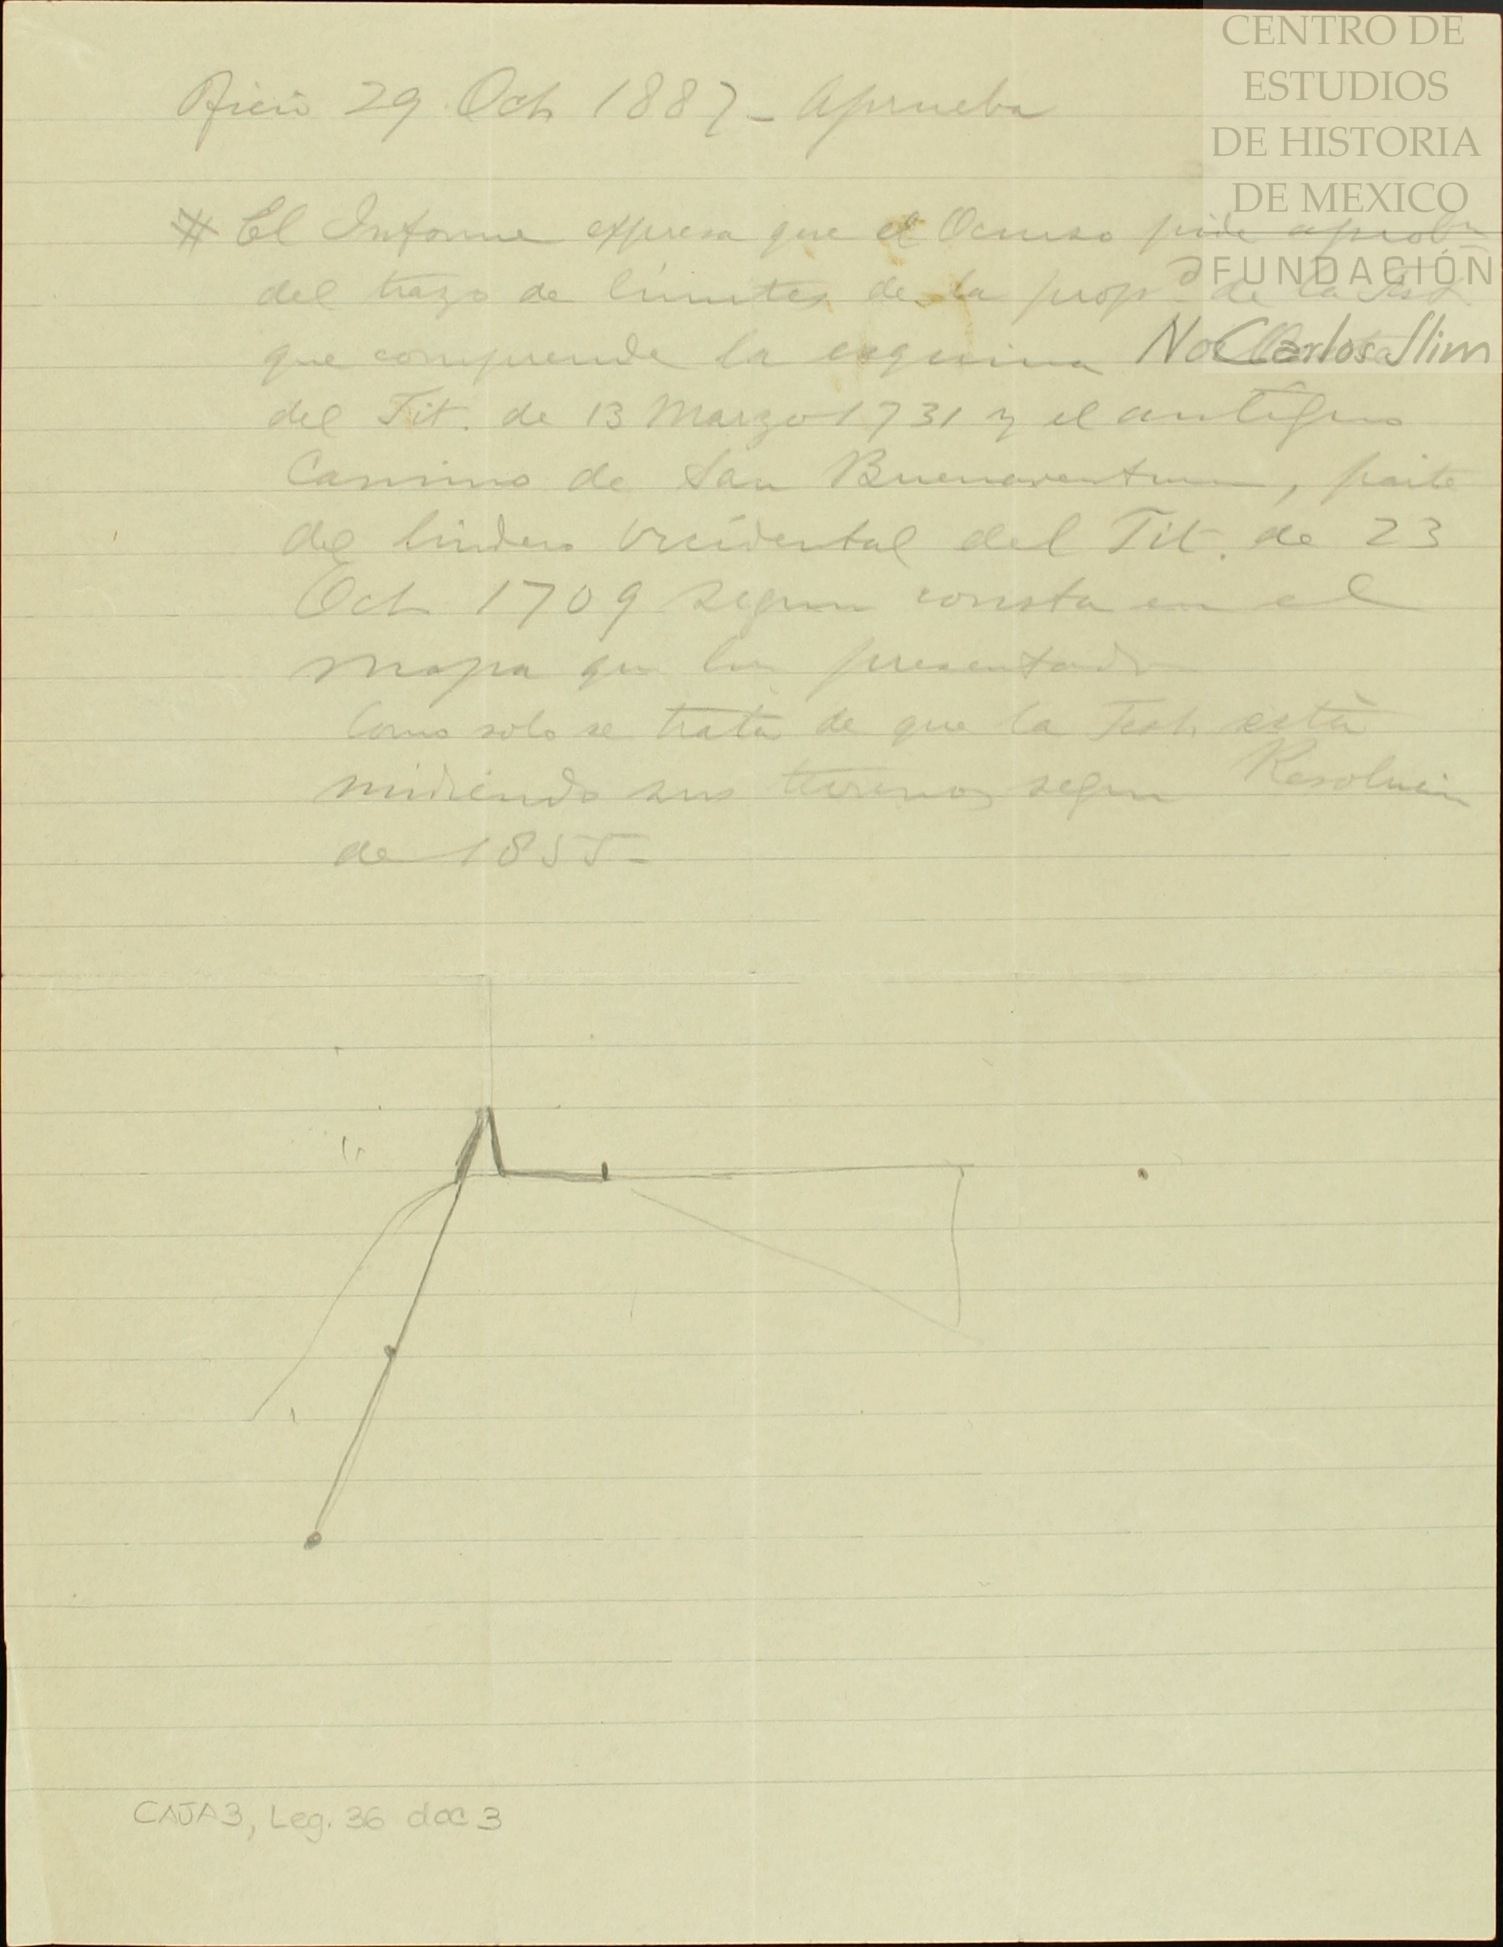 Oficio 29 Oct 1887 - Aprueba
CENTRO DE
ESTUDIOS
DE HISTORIA
DE MEXICO
FUNDACIÓN
Carlos Slim
# El Informe expresa que el Ocurso pide aprobn
del trazo de límites de la propd de la Test.
que comprende la esquina
del Tit. de 13 Marzo 1731 y el antiguo
Camino de San Buenaventura, parte
del lindero occidental del Tit. de 23
Oct 1709 segun consta en el
mapa que han presentado
Como solo se trata de que la Test. está
midiendo sus terrenos segun Resolucion
de 1855-
CAJA3, Leg. 36 doc 3